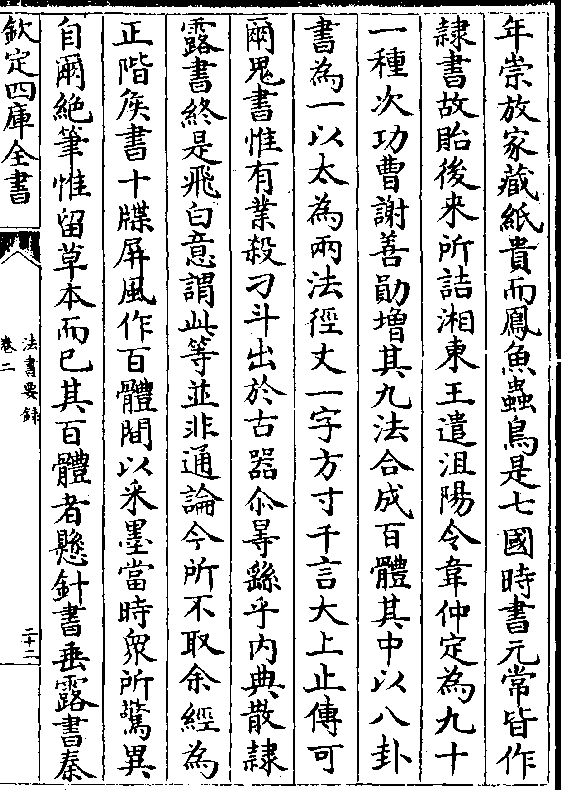 年崇放家藏紙貴而鳳魚蟲鳥是七國時書元常皆作
隷書故貽後來所詰湘東王遣沮陽令韋仲定為九十
一種次功曹謝善勛増其九法合成百體其中以八卦
書為一以太為兩法徑丈一字方寸千言大上止傳可
爾鬼書惟有業殺刁斗出於古器尒㝵繇乎內典散隷
露書終是飛白意謂此等並非通論今所不取余經為
正階侯書十牒屏風作百體間以采墨當時衆所驚異
自爾絶筆惟留草本而已其百體者懸針書垂露書秦
欽定四庫全書
法書要録
卷二
二十二